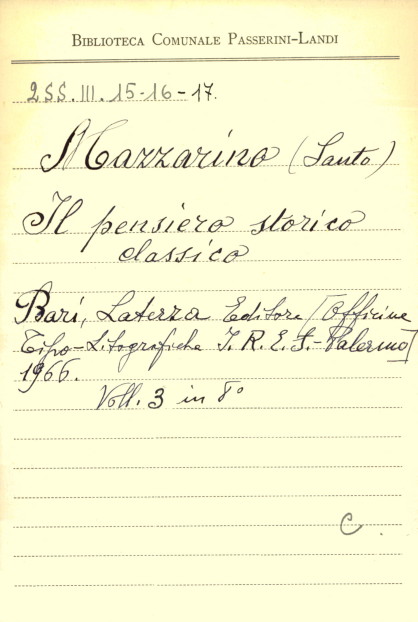 BIBLIOTECA COMUNALE PASSERINI-LANDI
2SS.III.15-16-17.
Mazzarino (Santo)
Il pensiero storico
classico
Bari, Laterza Editore [Officine
Tipo-Litografiche I.R.E.S.-Palermo]
1966.
Voll. 3 in 8°
C.